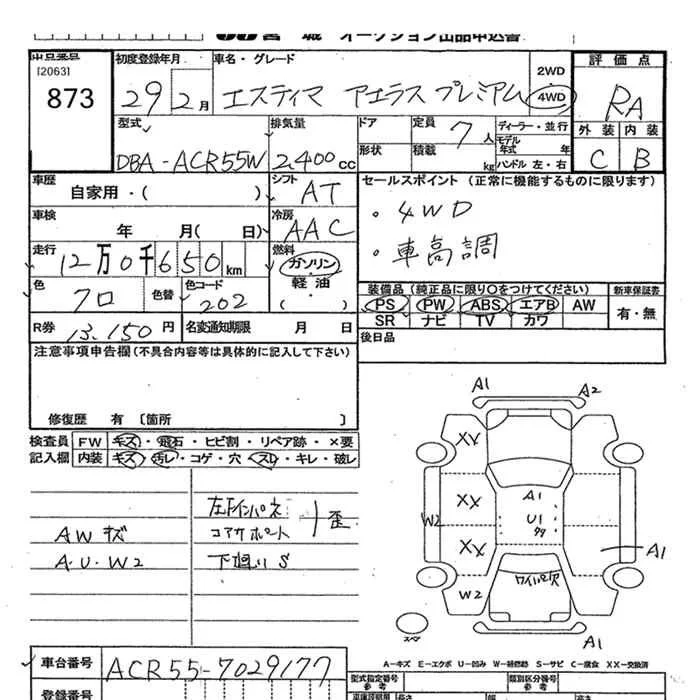 宮城 オークション出品申込書
出品番号
[2063]
873
初度登録年月
29年 2月
車名・グレード
エスティマ アエラス プレミアム
2WD
4WD
評価点
RA
外装 内装
C B
型式
DBA-ACR55W
排気量
2,400cc
ドア
形状
定員 7人
積載 kg
ディーラー・並行
モデル年式 年
ハンドル 左・右
車歴
自家用・( )
シフト
AT
セールスポイント (正常に機能するものに限ります)
・4WD
・車高調
車検
年 月( 日)
冷房
AAC
走行
12万0千650km
燃料
ガソリン
軽油
( )
色
クロ
色替
色コード
202
装備品(純正品に限り○をつけてください)
PS PW ABS エアB AW
SR ナビ TV カワ
新車保証書
有・無
R券 13,150円
名変通知期限 月 日
後日品
注意事項申告欄(不具合内容等は具体的に記入して下さい)
修復歴 有 〔箇所 〕
検査員記入欄
FW キズ・飛石・ヒビ割・リペア跡・×要
内装 キズ・汚レ・コゲ・穴・スレ・キレ・破レ
AWキズ
A・U・W2
左下インパネ
コアサポート
歪
下廻りS
A1
A2
XX
XX
XX
W2
W2
A1
U1
A1
ワイパー穴
A1
スペア
A-キズ E-エクボ U-凹み W-補修跡 S-サビ C-腐食 XX-交換済
車台番号
ACR55-7029177
登録番号
型式指定番号
参考
類別区分番号
参考